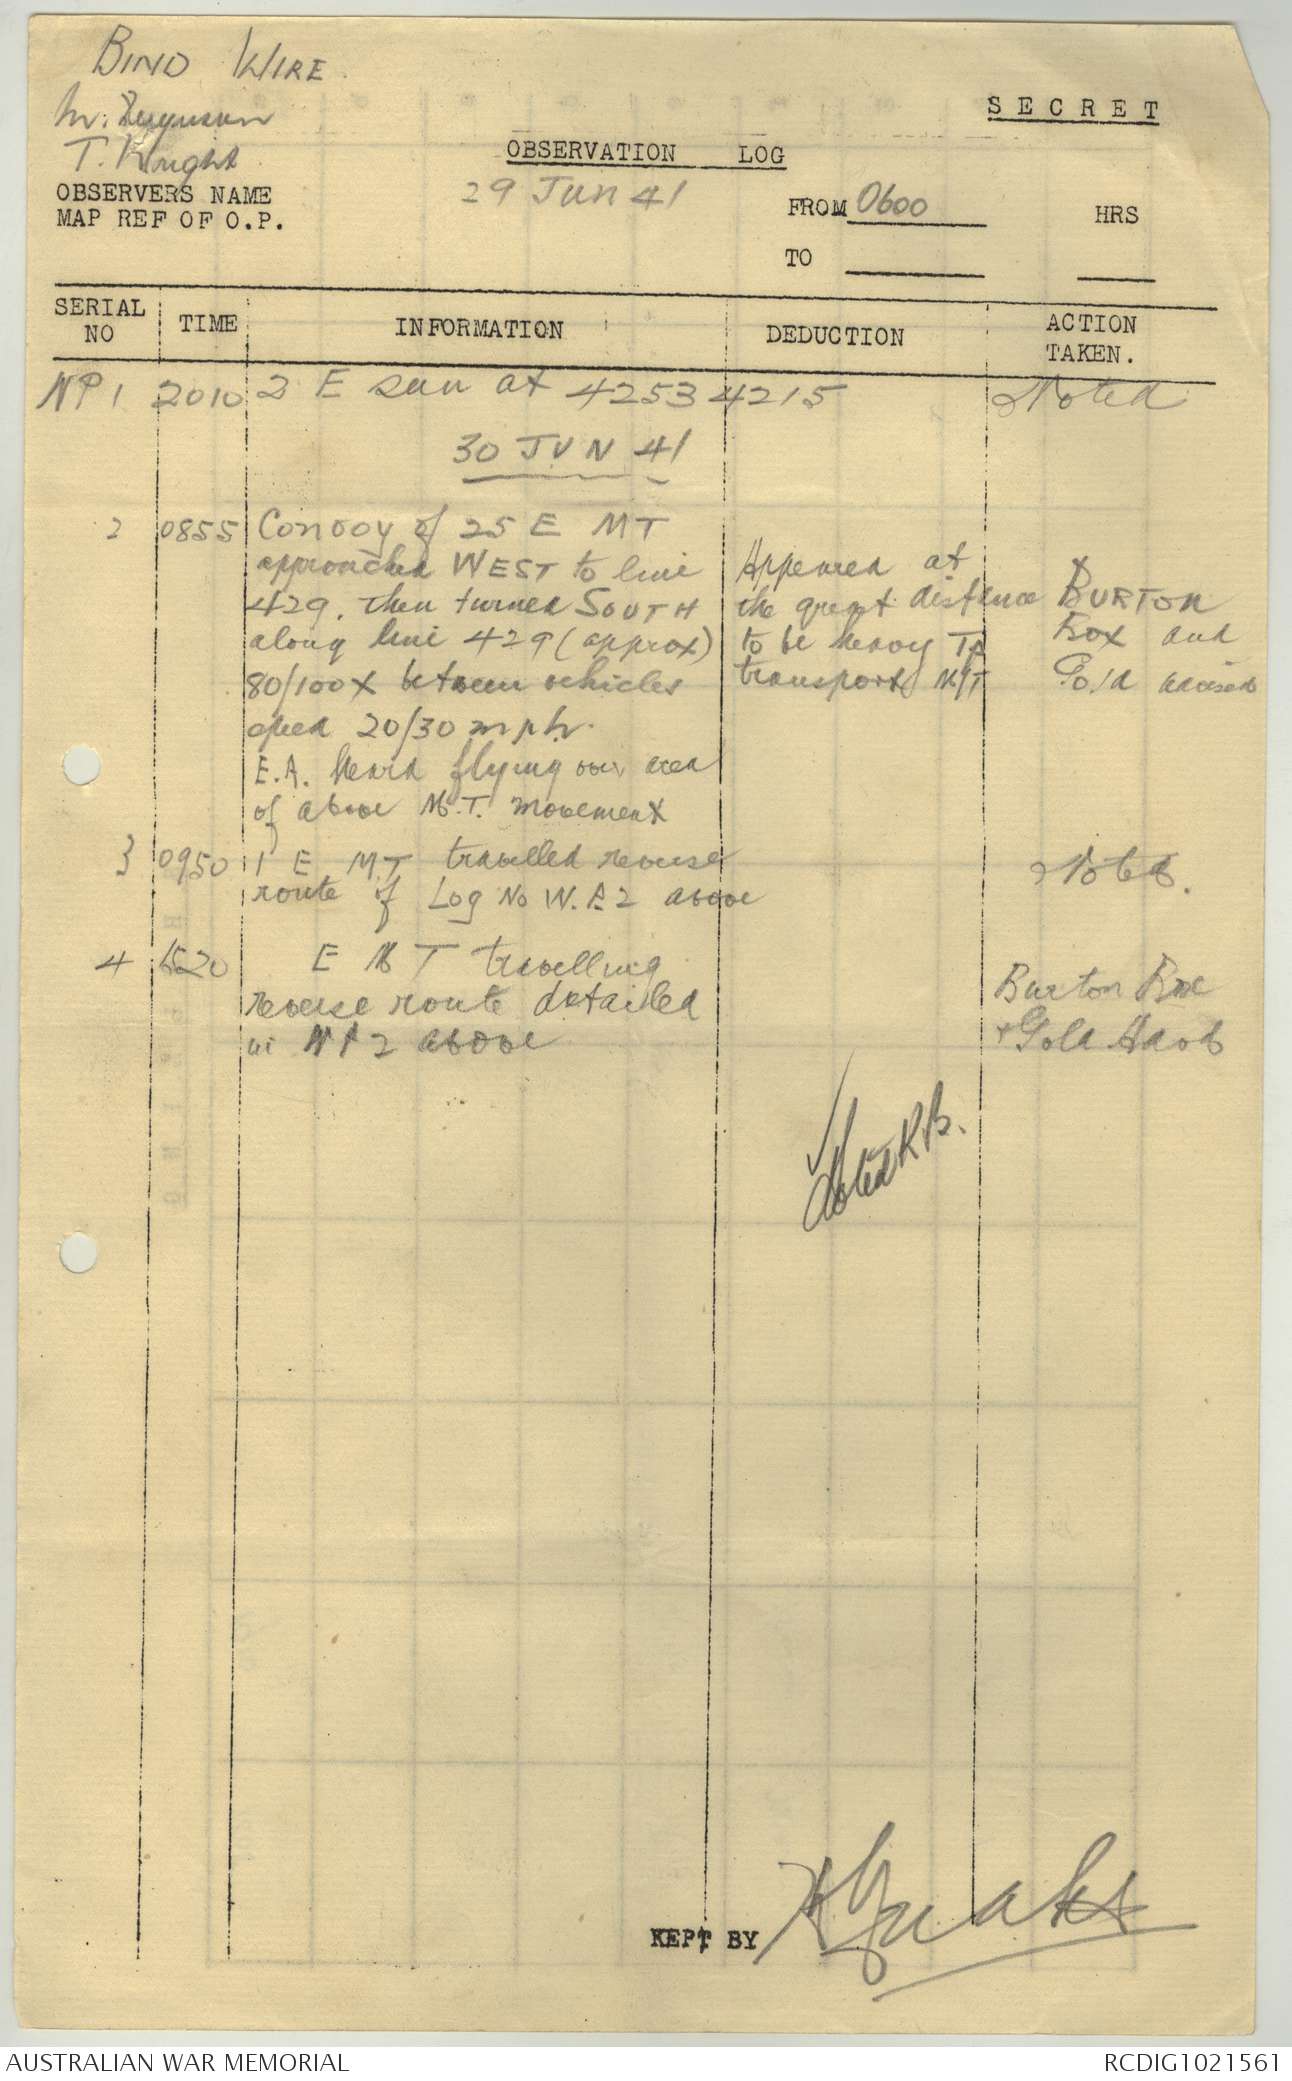 BIND WIRE
SECRET
M. Ferguson
T. Wright
OBSERVATION LOG
OBSERVERS NAME
29 Jun 41
MAP REF OF O.P.
FROM 0600 HRS
TO
SERIAL NO TIME INFORMATION DEDUCTION ACTION TAKEN.
NP 1 2010 2 E seen at 42534215 Noted
30 JUN 41
2 0855 Convoy of 25 E MT
approached WEST to line Appeared at
429, then turned SOUTH the great distance BURTON
along line 429 (approx) to be heavy Box and
80/100x between vehicles transport M/T Gold advised
speed 20/30 mph.
E.A. heard flying over area
of above M.T. movement
3 0950 1 E MT travelled reverse Noted.
route of Log No 2 above
4 1520 E MT travelling
reverse route detailed Burton Box
in NP 2 above + Gold
Noted R.B.
KEPT BY
AUSTRALIAN WAR MEMORIAL RCDIG1021561